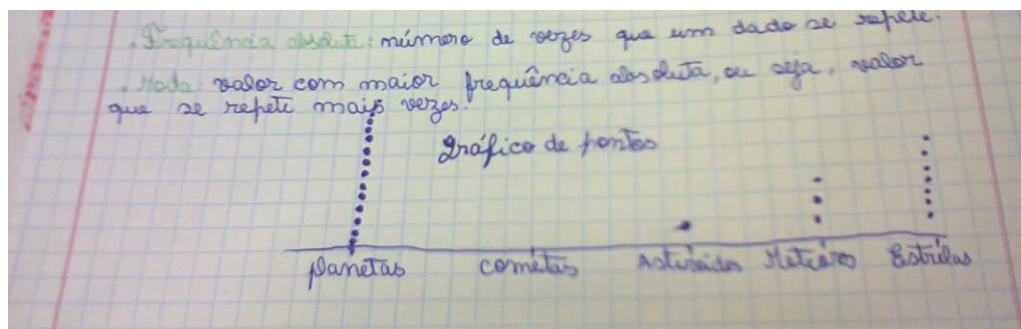 . Frequência absoluta: número de vezes que um dado se repete.
. Moda: valor com maior frequência absoluta, ou seja, valor
que se repete mais vezes.
Gráfico de pontos
Planetas cometas Asteroides Meteóros Estrelas